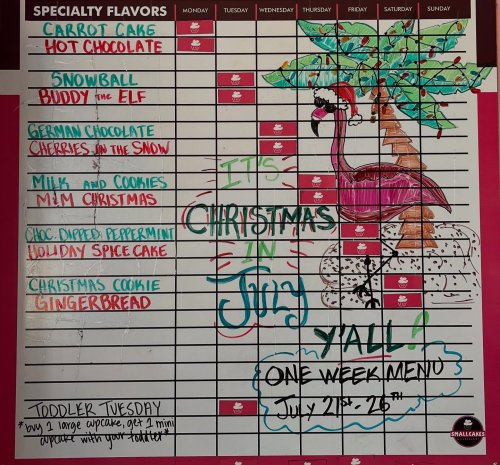 SPECIALTY FLAVORS MONDAY TUESDAY WEDNESDAY THURSDAY FRIDAY SATURDAY SUNDAY
CARROT CAKE
HOT CHOCOLATE
SNOWBALL
BUDDY THE ELF
GERMAN CHOCOLATE
CHERRIES IN THE SNOW
MILK AND COOKIES
M&M CHRISTMAS
CHOC. DAPPED PEPPERMINT
HOLIDAY SPICE CAKE
CHRISTMAS COOKIE
GINGERBREAD
IT'S
CHRISTMAS
IN
JULY
Y'ALL!
ONE WEEK MENU
JULY 21ST - 26TH
TODDLER TUESDAY
*buy 1 large cupcake, get 1 mini
cupcake with your toddler*
SMALLCAKES